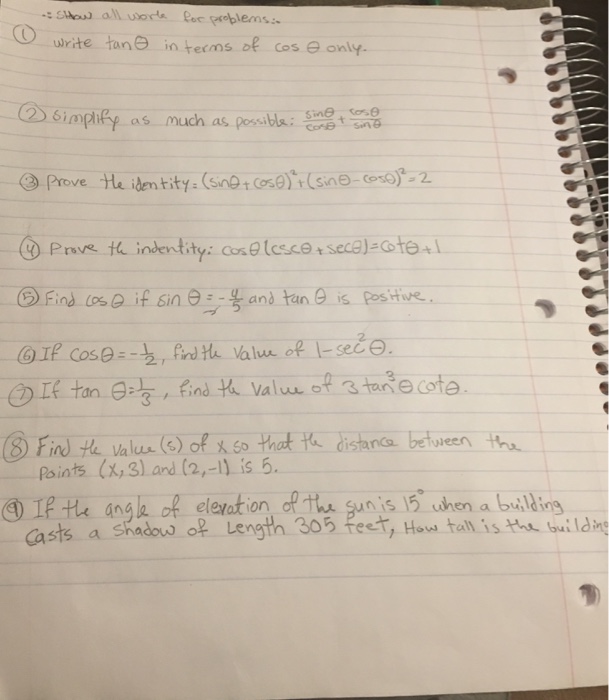 ∴ Show all work for problems:.
① write tanθ in terms of cos θ only.
② Simplify as much as possible: sinθ/cosθ + cosθ/sinθ
③ Prove the identity: (sinθ + cosθ)² + (sinθ - cosθ)² = 2
④ Prove the indentity: cosθ(cscθ + secθ) = cotθ + 1
⑤ Find cos θ if sin θ = -4/5 and tan θ is positive.
⑥ If cosθ = -1/2, find the value of 1-sec²θ.
⑦ If tan θ = 1/3, find the value of 3 tan³θ cotθ.
⑧ Find the value(s) of x so that the distance between the
points (x, 3) and (2, -1) is 5.
⑨ If the angle of elevation of the sun is 15° when a building
casts a shadow of Length 305 feet, How tall is the building